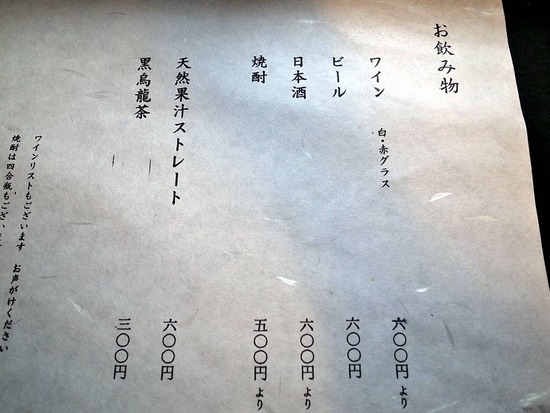 お飲み物
ワイン 白・赤グラス 六〇〇円より
ビール 六〇〇円
日本酒 六〇〇円より
焼酎 五〇〇円より
天然果汁ストレート 六〇〇円
黒烏龍茶 三〇〇円
ワインリストもございます お声がけください
焼酎は四合瓶もござい